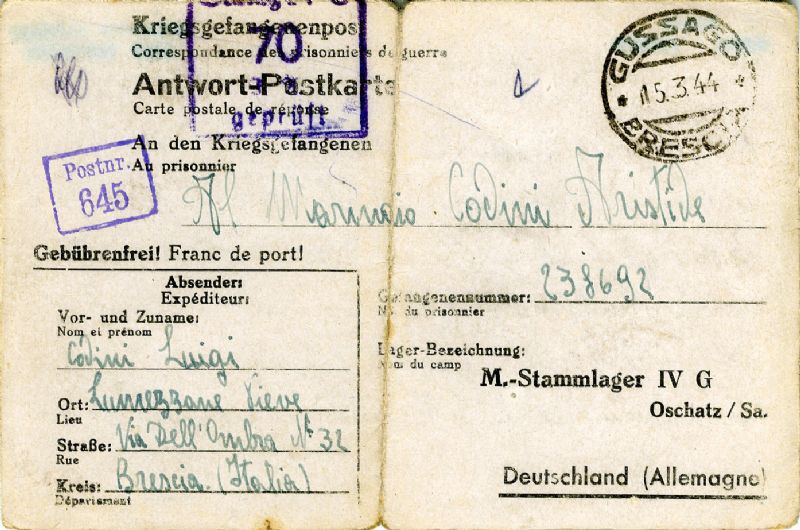 Kriegsgefangenenpost
Correspondance des prisonniers de guerre
Antwort-Postkarte
Carte postale de réponse
70
geprüft
GUSSAGO
15.3.44
BRESCIA
An den Kriegsgefangenen
Au prisonnier
Postnr.
645
Al Marinaio Codini Aristide
Gebührenfrei! Franc de port!
Absender:
Expéditeur:
Vor- und Zuname:
Nom et prénom
Codini Luigi
Ort: Lumezzane Pieve
Lieu
Straße: Via Dell'Ombra N° 32
Rue
Kreis: Brescia (Italia)
Département
Gefangenennummer: 238692
No. du prisonnier
Lager-Bezeichnung:
Nom du camp
M.-Stammlager IV G
Oschatz / Sa.
Deutschland (Allemagne)